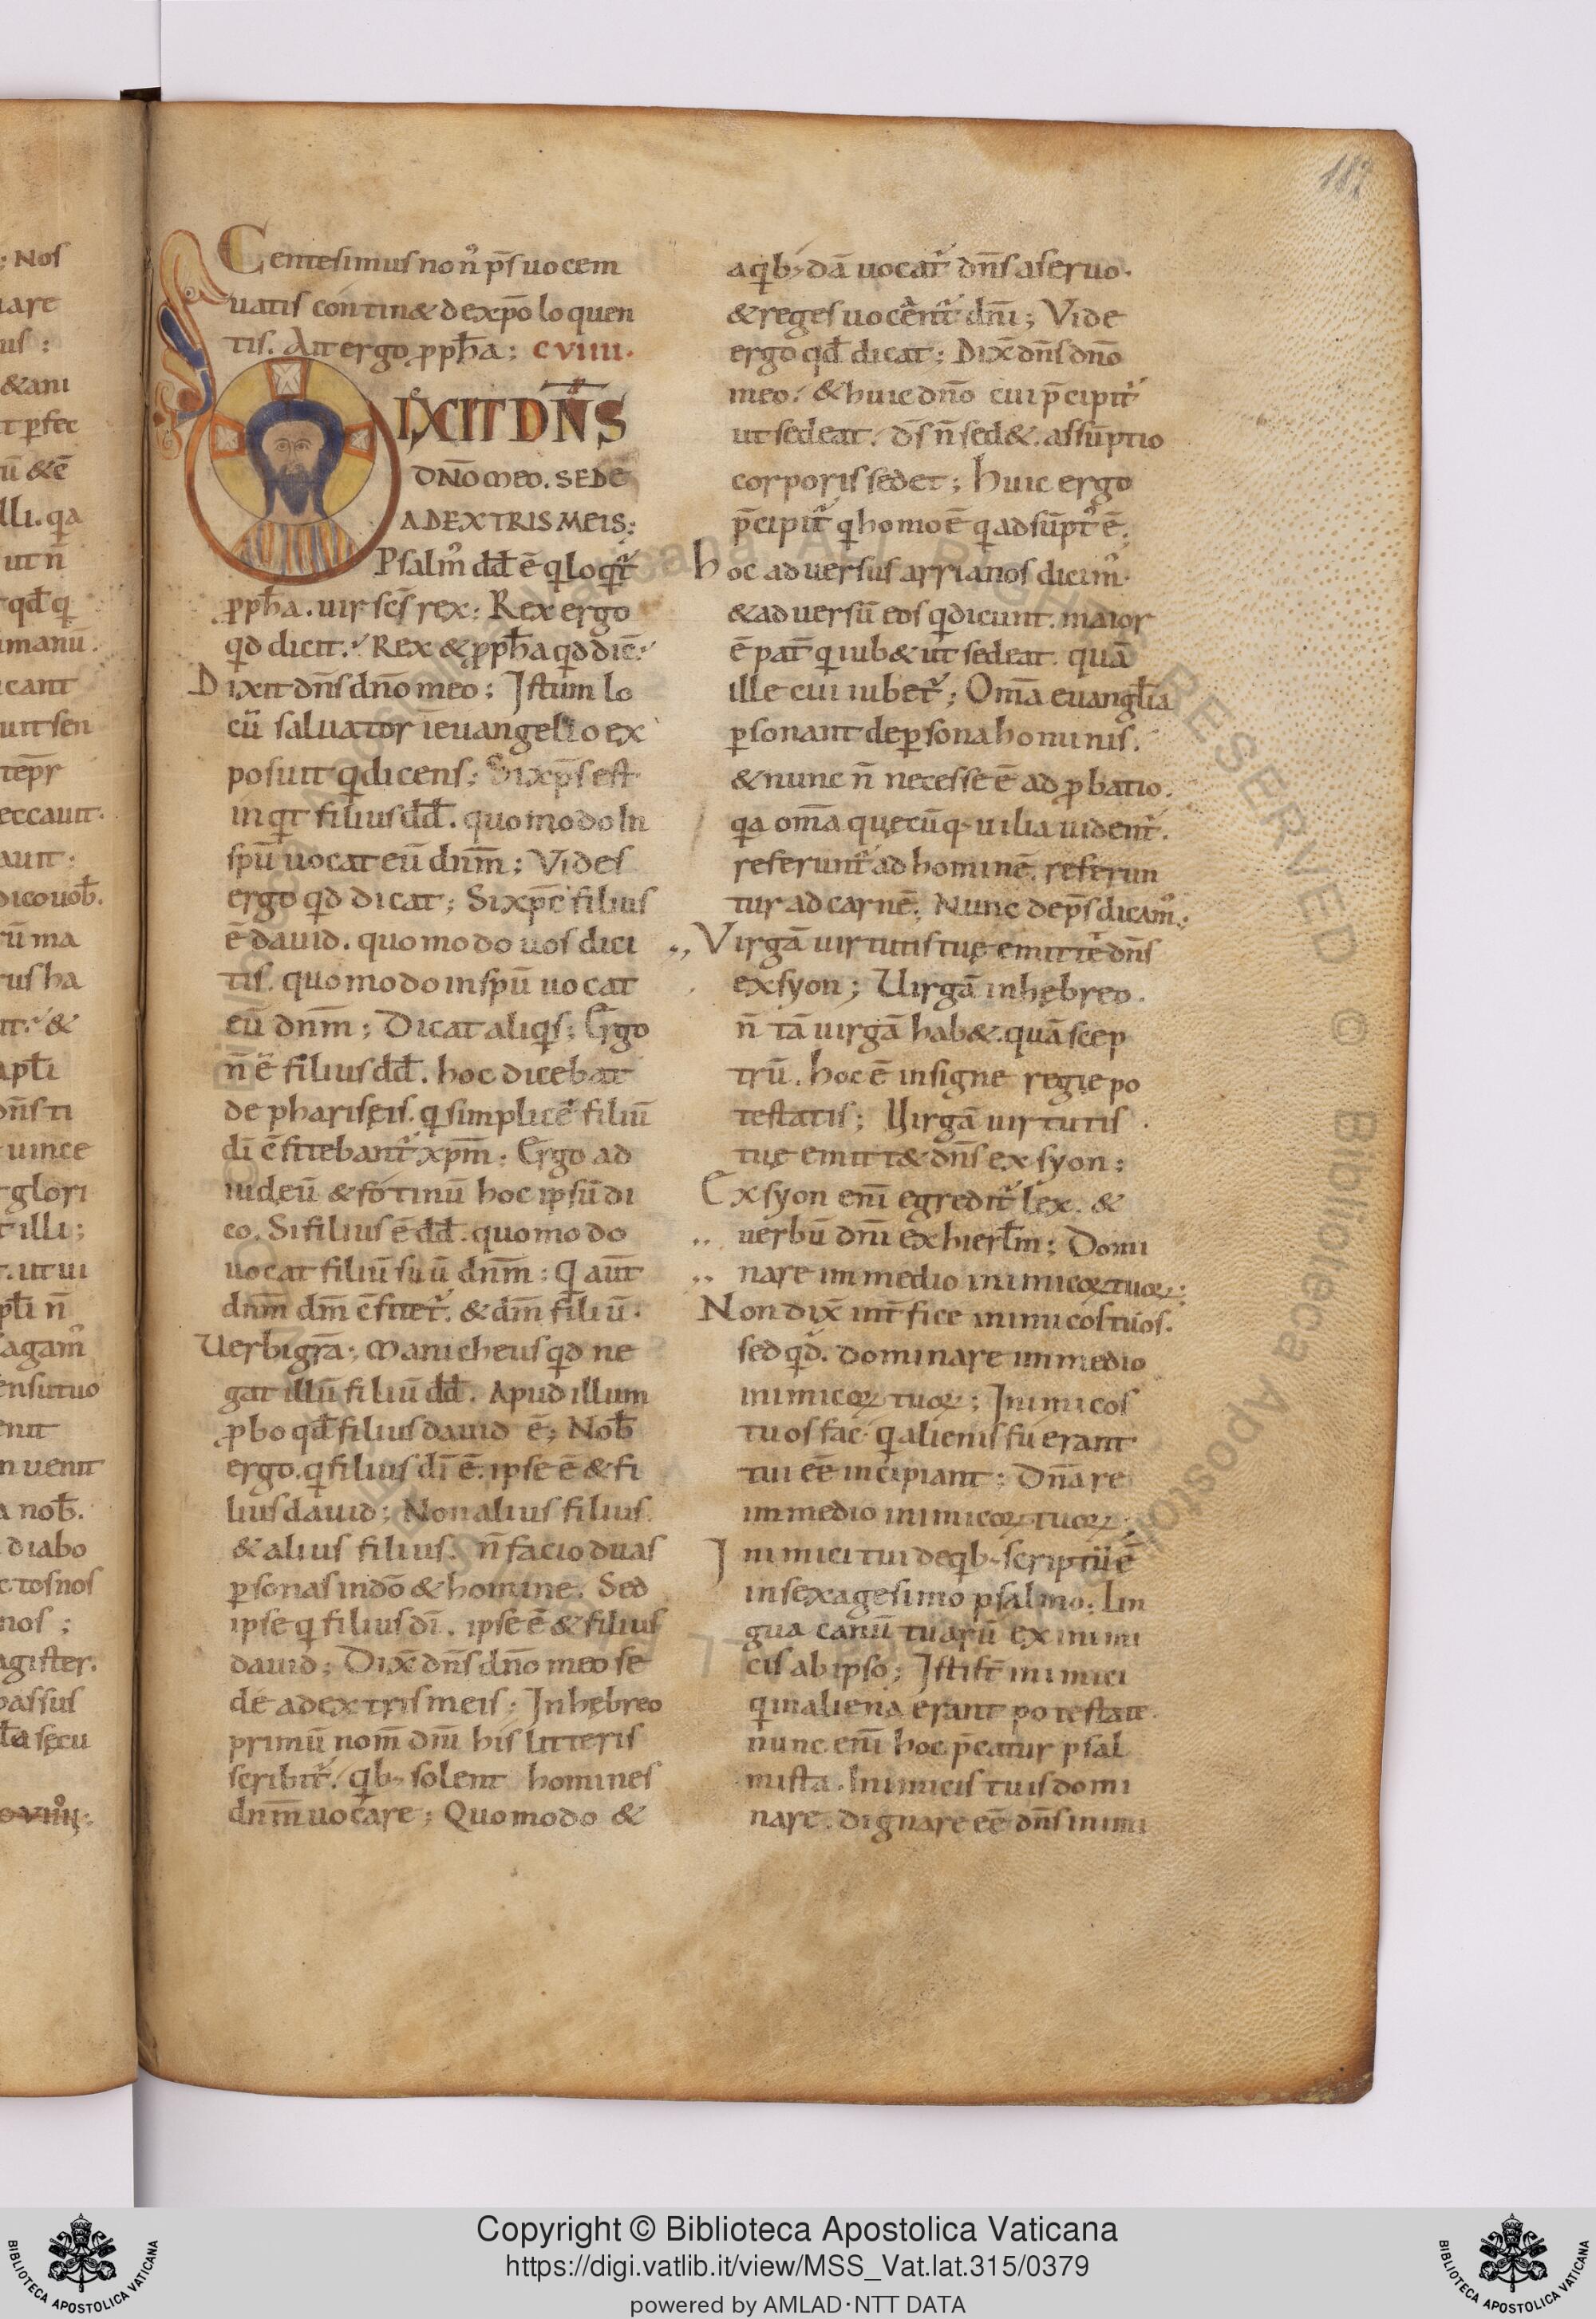 187
Centesimus non᷒ ps̄ uocem
uatis contin& de xp̄o loquen
tis. Ait ergo ꝓph̄a; CVIIII.
DIXIT DN̄S
DN̄O MEO. SEDE
A DEXTRIS MEIS;
Psalm᷒ dd̄ ē q loqit᷒
ꝓph̄a. uir sc̄s rex; Rex ergo
qd dicit. Rex & ꝓph̄a qd dic̄.
Dixit dn̄s dn̄o meo; Istum lo
cū saluator ī euangelio ex
posuit q dicens; Si xp̄s est
inqt filius dd̄. quomodo In
spū uocat eū dn̄m; Vides
ergo qd dicat; Si xp̄c filius
ē dauid. quomodo uos dici
tis. quomodo in spū uocat
eū dn̄m; Dicat aliqs; Ergo
n̄ ē filius dd̄. hoc dicebat
de phariseis. q simplicē filiū
dī c̄fitebant᷒ xp̄m; Ergo ad
iudeū & fotinū hoc ipsū di
co. Si filius ē dd̄. quomodo
uocat filiū suū dn̄m; Q aut̄
dn̄m dm̄ c̄fitet᷒. & dm̄ filiū.
Verbi gr̄a; Manicheus qd ne
gat illū filiū dd̄. Apud illum
ꝓbo qd̄ filius dauid ē; Nob̄
ergo. q filius dī ē. ipse ē & fi
lius dauid; Non alius filius.
& alius filius. n̄ facio duas
ꝑsonas in dō & homine. Sed
ipse q filius dī. ipse ē & filius
dauid; Dix̄ dn̄s dn̄o meo se
de a dextris meis; In hębreo
primū nom̄ dn̄i his litteris
scribit᷒. qb; solent homines
dn̄m uocare; Quomodo &
a qb; dā uocat᷒ dn̄s a seruo.
& reges uocent᷒ dn̄i; Vide
ergo qd̄ dicat; Dix̄ dn̄s dn̄o
meo. & huic dn̄o cui p̄cipit᷒
ut sedeat. d̄s n̄ sed&. assūptio
corporis sedet; Huic ergo
p̄cipit᷒ q homo ē q adsūpt᷒ ē;
Hoc aduersus arrianos dicim᷒.
& aduersū eos q dicunt. maior
ē pat̄ q iub& ut sedeat. quā
ille cui iubet᷒; Om̄a euangl̄ia
ꝑsonant de ꝑsona hominis.
& nunc n̄ necesse ē ad ꝓbatio.
qa om̄a quęcūq; uilia uident᷒.
referunt᷒ ad hominē. referun
tur ad carnē; Nunc de ps̄ dicam᷒;
Virgā uirtutis tuę emittet dn̄s
ex syon; Uirgā in hębreo.
n̄ tā uirgā hab&. quā scep
trū. hoc ē insigne regię po
testatis; Uirgā uirtutis
tuę emitt& dn̄s ex syon;
Ex syon eni᷒ egredit᷒ lex. &
uerbū dn̄i ex hierl̄m; Domi
nare in medio inimicoꝝ tuoꝝ;
Non dix̄ int̄fice inimicos tuos.
sed qd. dominare in medio
inimicoꝝ tuoꝝ; Inimicos
tuos fac. q alienis fuerant
tui eē incipiant; Dn̄are
in medio inimicoꝝ tuoꝝ;
Inimici tui de qb; scriptū ē
in sexagesimo psalmo. Lin
gua canū tuarū ex inimi
cis ab ipso; Isti st̄ inimici
q in aliena erant potestate.
nunc enī hoc p̄catur psal
mista. Inimicis tuis domi
nare. dignare eē dn̄s inimi
Copyright © Biblioteca Apostolica Vaticana
https://digi.vatlib.it/view/MSS_Vat.lat.315/0379
powered by AMLAD·NTT DATA
BIBLIOTECA APOSTOLICA VATICANA
BIBLIOTECA APOSTOLICA VATICANA